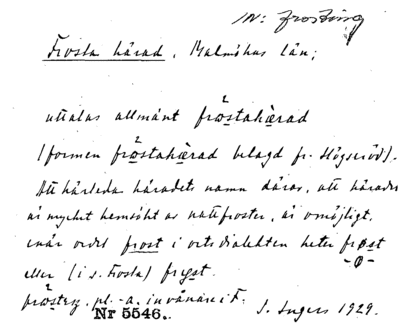 in: frosting
Frosta härad, Malmöhus län;
uttalas allmänt fròstahä̀rad
(formen fròstahä̀rad belagd fr. Högseröd).
Att härleda häradets namn därav, att häradet
är mycket hemsökt av nattfroster, är omöjligt,
enär ordet frost i ortsdialekten heter frost
eller (i s. Frosta) frøst.
pl. -a, invånare i F.
Nr 5546.
I. Ingers 1929.